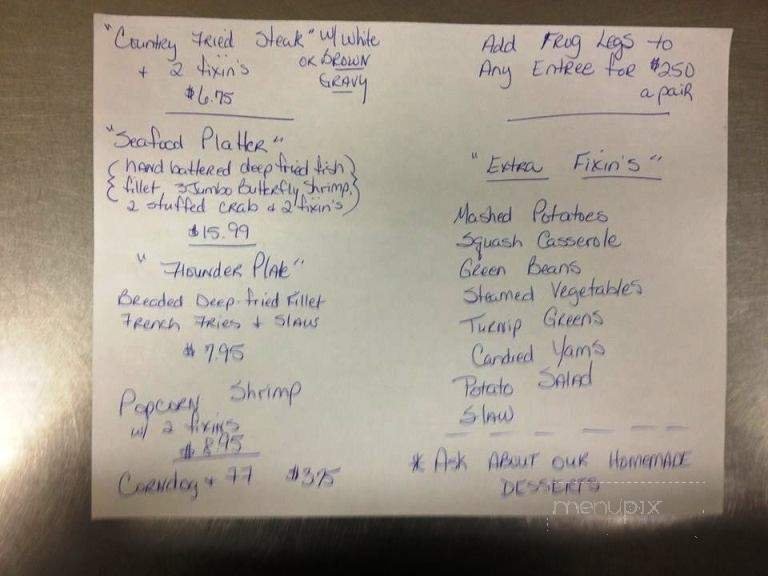 "Country Fried Steak" w/ white
or Brown
+ 2 fixin's
Gravy
$6.75
"Seafood Platter"
(hand battered deep fried fish)
fillet, 3 Jumbo Butterfly Shrimp,
2 stuffed crab & 2 fixin's
$15.99
"Flounder Plate"
Breaded Deep-fried Fillet
French Fries + Slaw
$7.95
Popcorn Shrimp
w/ 2 fixin's
$8.95
Corndog + FF $3.75
Add Frog Legs to
Any Entree for $2.50
a pair
"Extra Fixin's"
Mashed Potatoes
Squash Casserole
Green Beans
Steamed Vegetables
Turnip Greens
Candied Yams
Potato Salad
Slaw
* Ask About our Homemade
Desserts
menupix